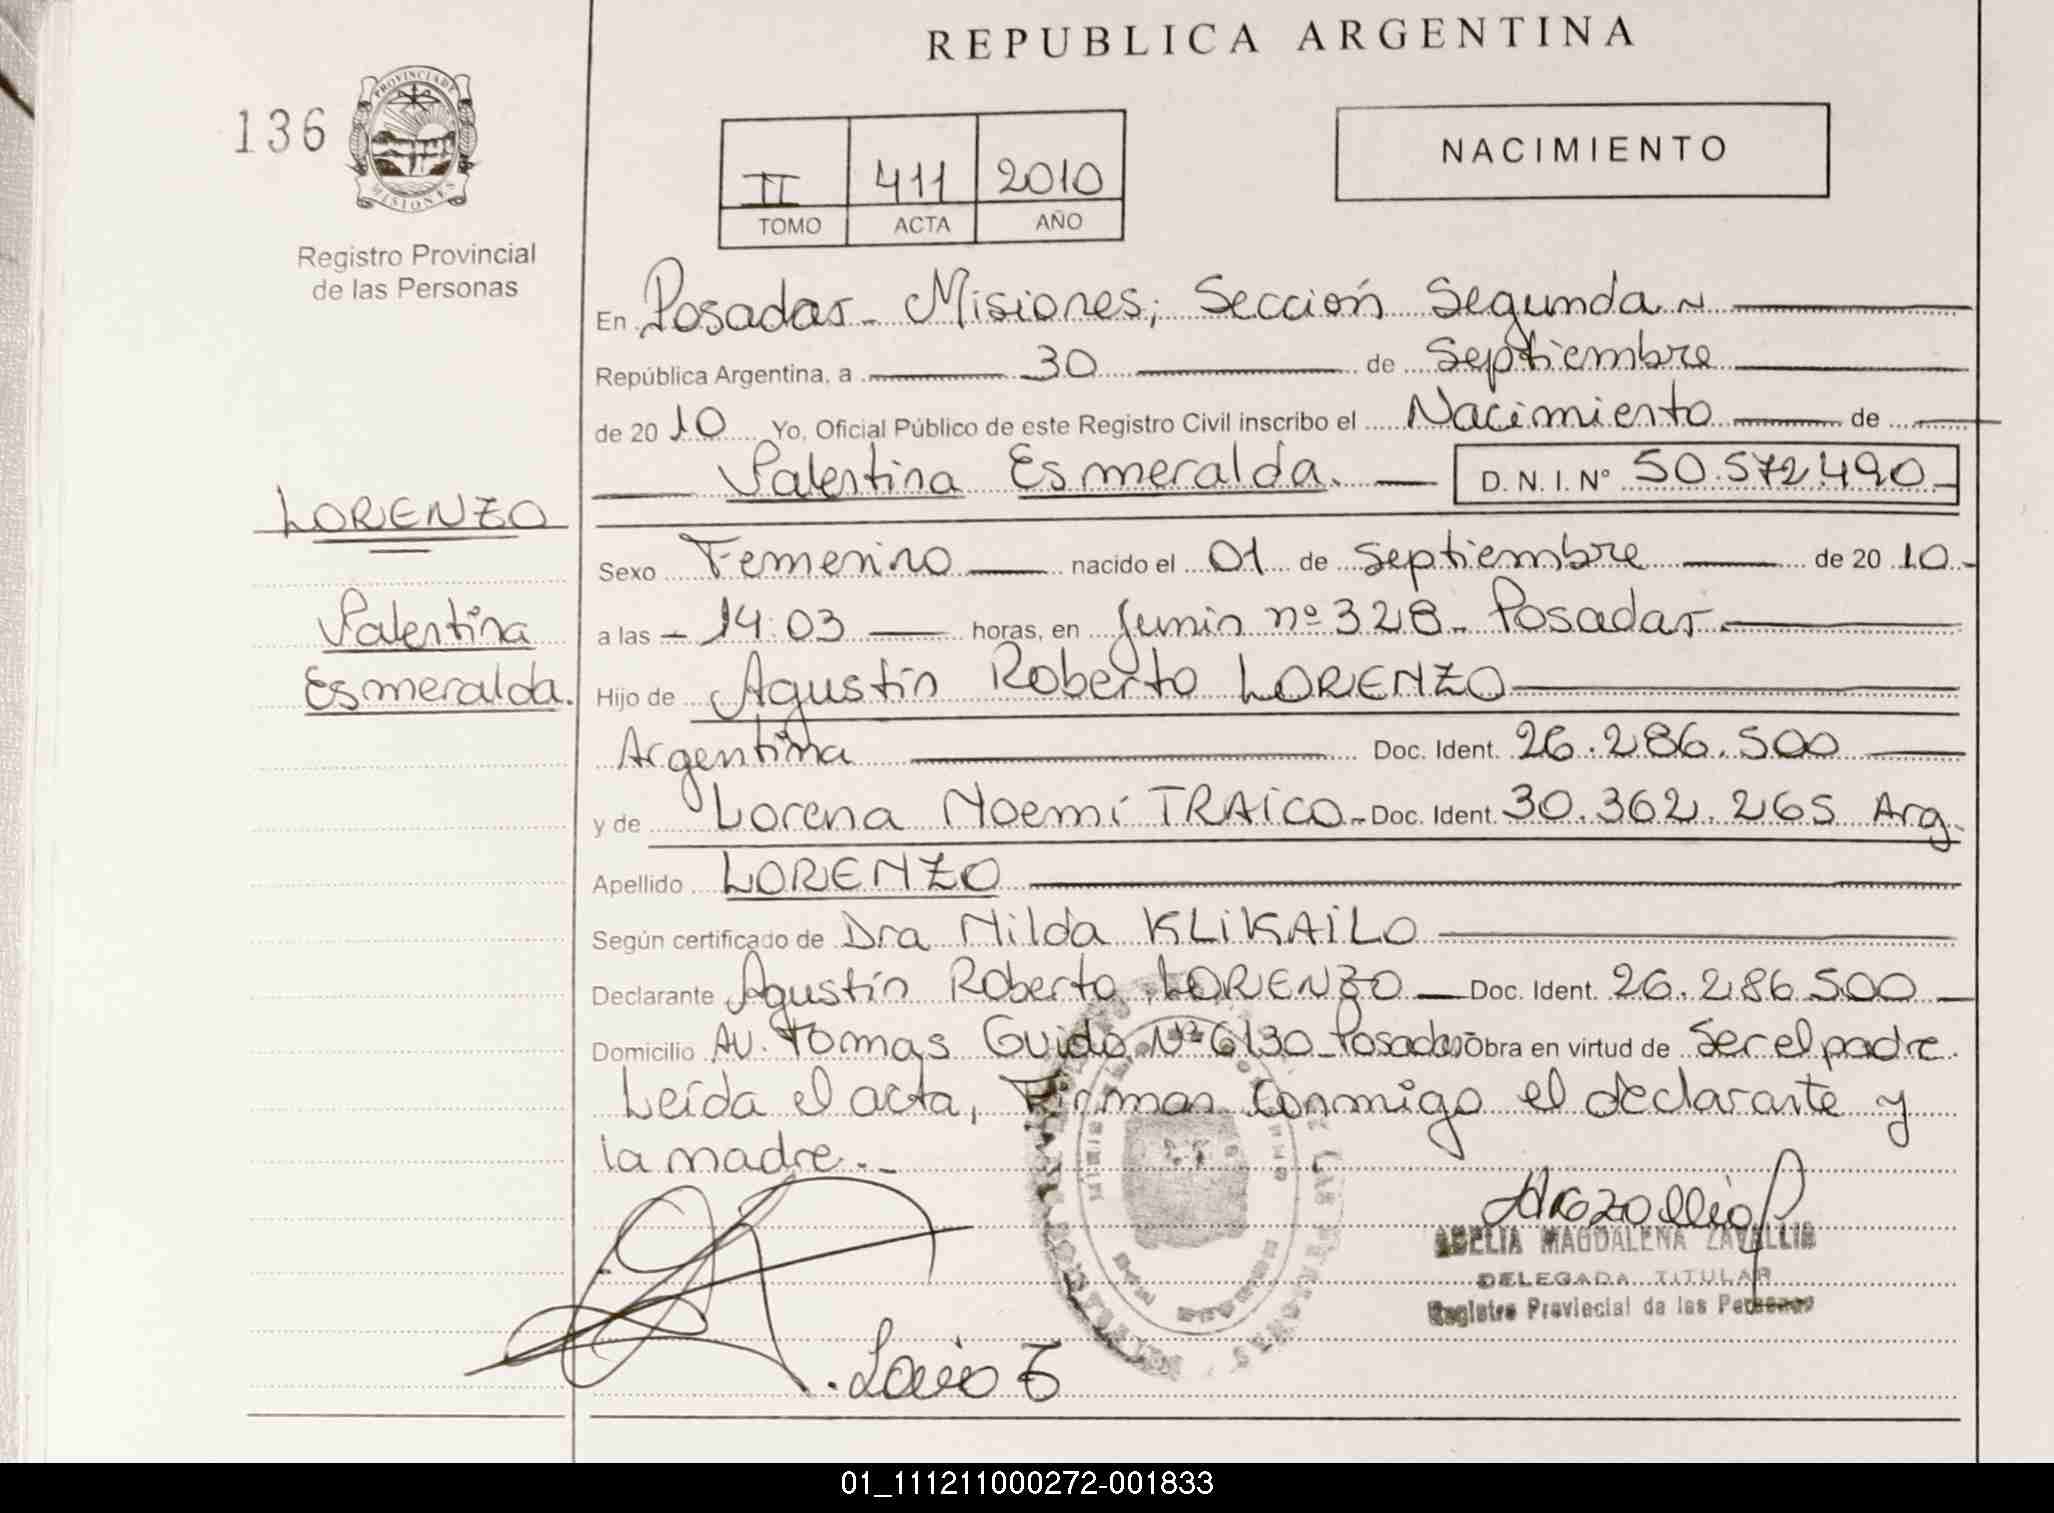 REPUBLICA ARGENTINA
136
PROVINCIA DE
MISIONES
Registro Provincial
de las Personas
II 411 2010
TOMO ACTA AÑO
NACIMIENTO
En Posadas - Misiones; Sección Segunda
República Argentina, a 30 de Septiembre
de 2010 Yo, Oficial Público de este Registro Civil inscribo el Nacimiento de
Valentina Esmeralda. D. N. I. Nº 50.572.490
LORENZO
Sexo Femenino nacido el 01 de Septiembre de 2010
Valentina
a las 14:03 horas, en Junin nº 328 - Posadas
Esmeralda.
Hijo de Agustín Roberto LORENZO
Argentina Doc. Ident. 26.286.500
y de Lorena Noemí TRAICO - Doc. Ident. 30.362.265 Arg.
Apellido LORENZO
Según certificado de Dra Nilda KLIKAILO
Declarante Agustín Roberto LORENZO Doc. Ident. 26.286.500
Domicilio AV. Tomas Guido Nº 6130 - Posadas Obra en virtud de Ser el padre.
Leída el acta, Firman Conmigo el declarante y
la madre. -
ADELIA MAGDALENA
DELEGADA TITULAR
Registro Provincial de las Personas
01_111211000272-001833